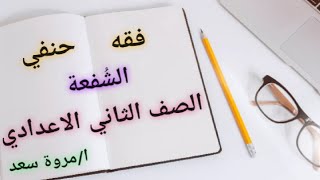 فقه حنفي
الشُفعة
الصف الثاني الاعدادي
ا/مروة سعد